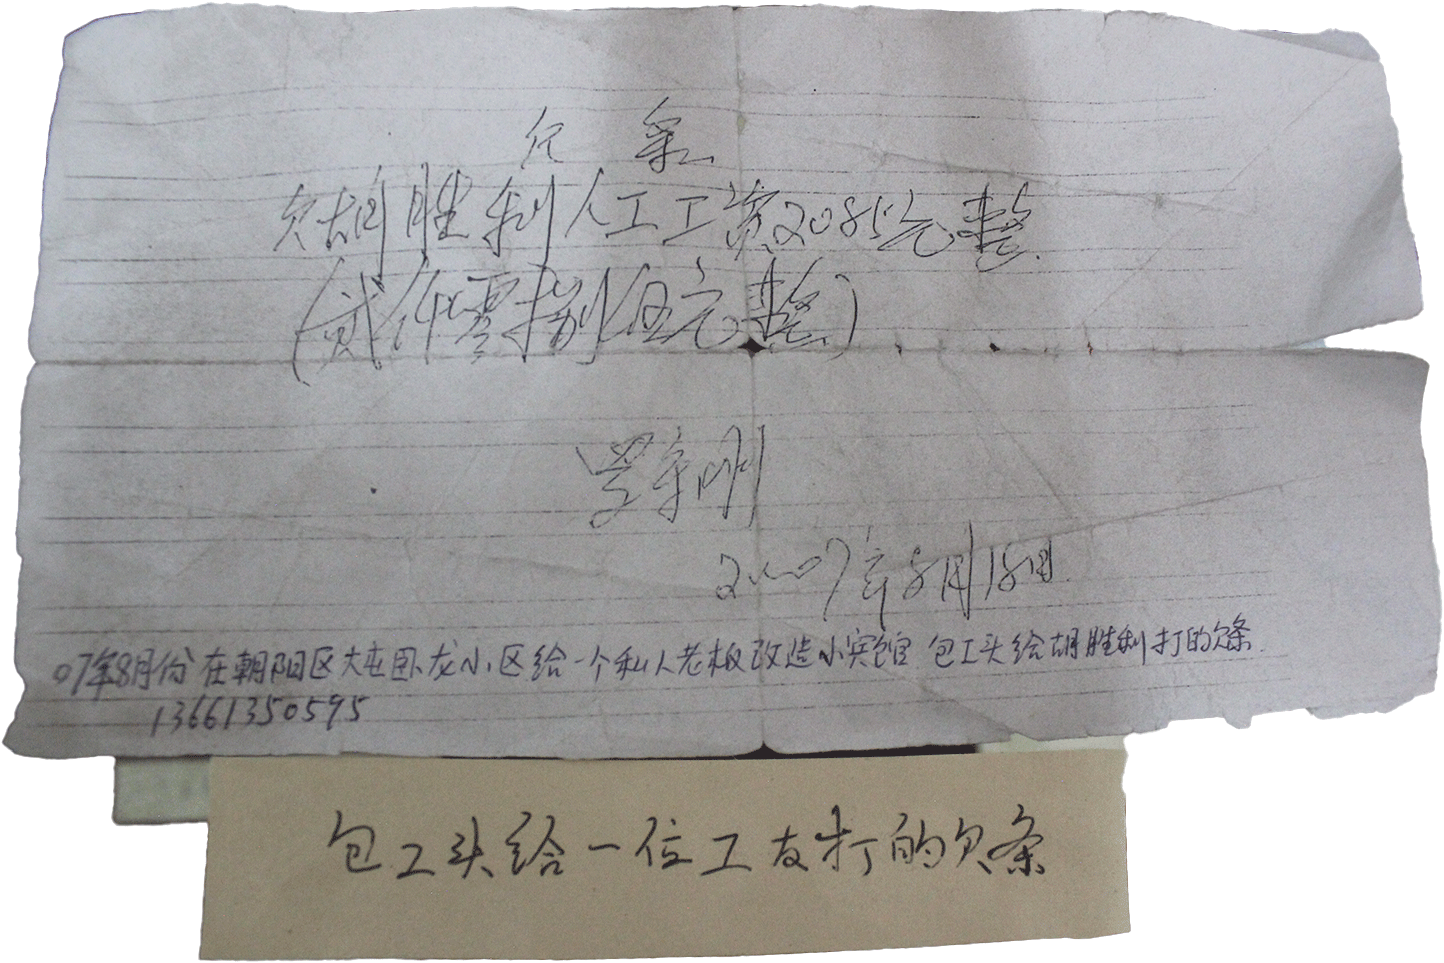 欠条
欠胡胜利人工工资2085元整
(贰仟零捌伍元整)
2007年8月18日
07年8月份在朝阳区大屯卧龙小区给一个私人老板改造小宾馆 包工头给胡胜利打的欠条.
13661350595
包工头给一位工友打的欠条